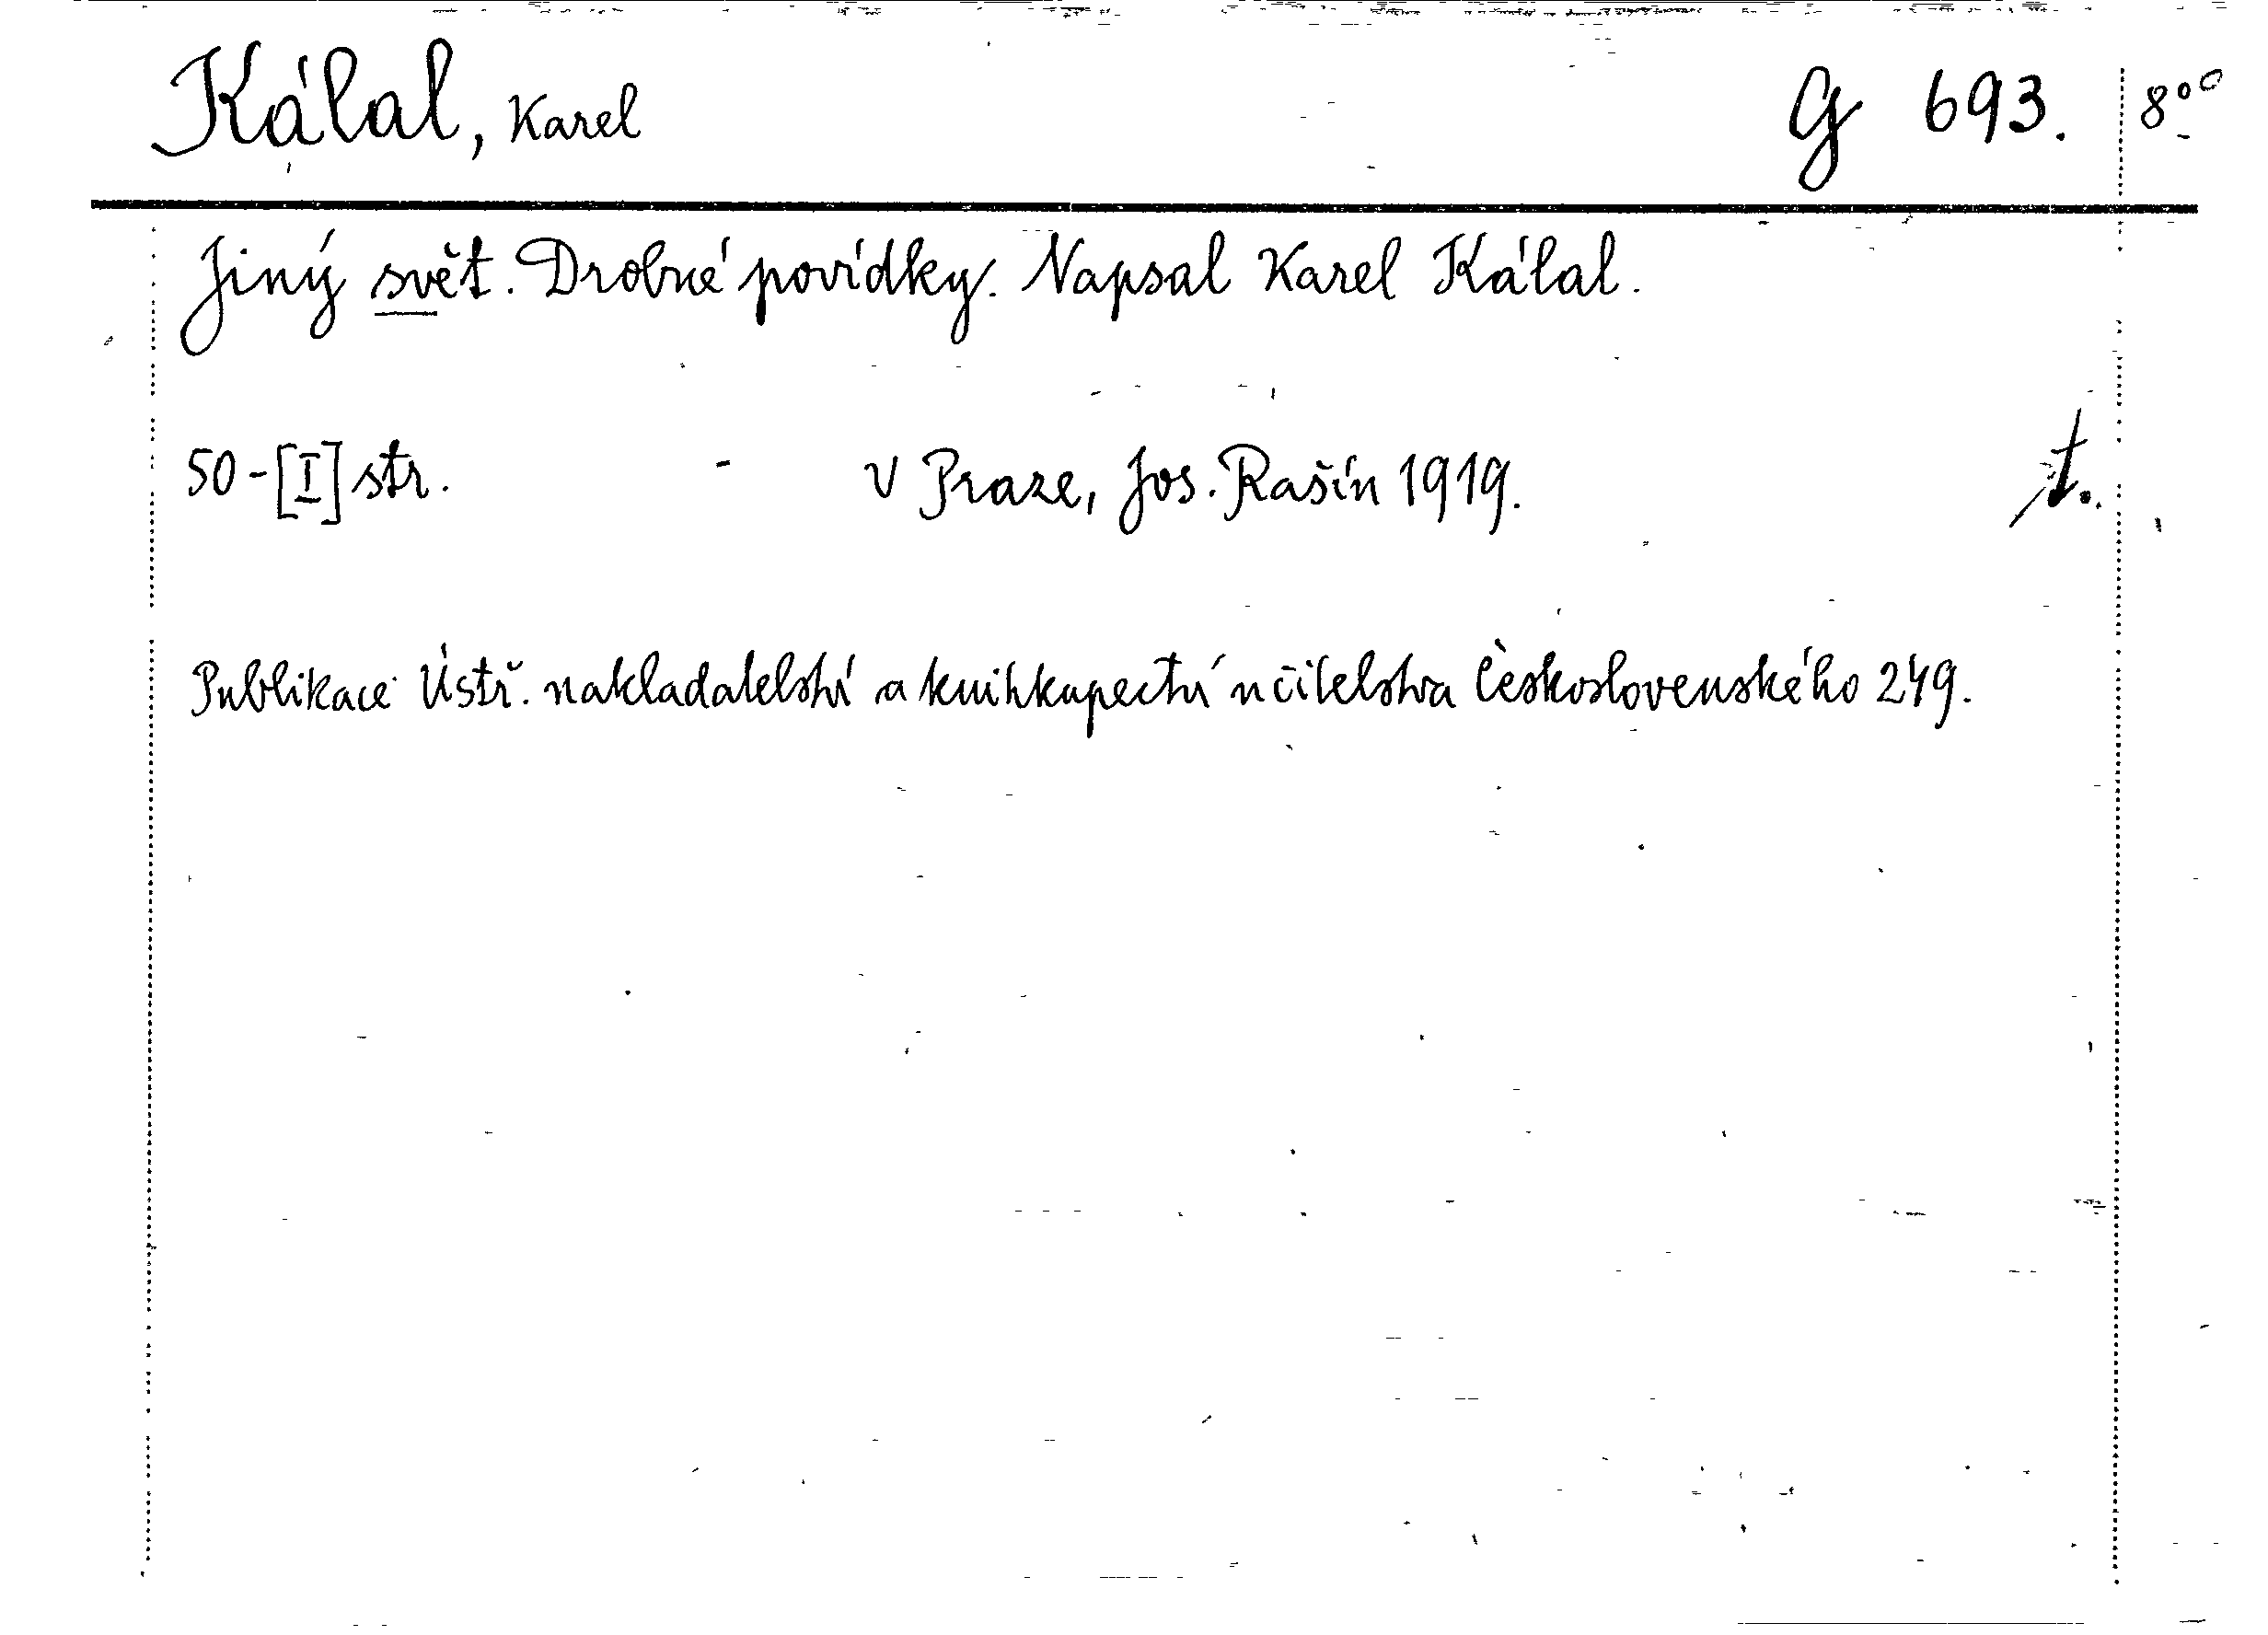 Kálal, Karel G 693. 8°°
Jiný svět. Drobné povídky. Napsal Karel Kálal.
50-[I] str. - V Praze, Jos. Rašín 1919. t.
Publikace Ústř. nakladatelství a knihkupectví učitelstva československého 249.